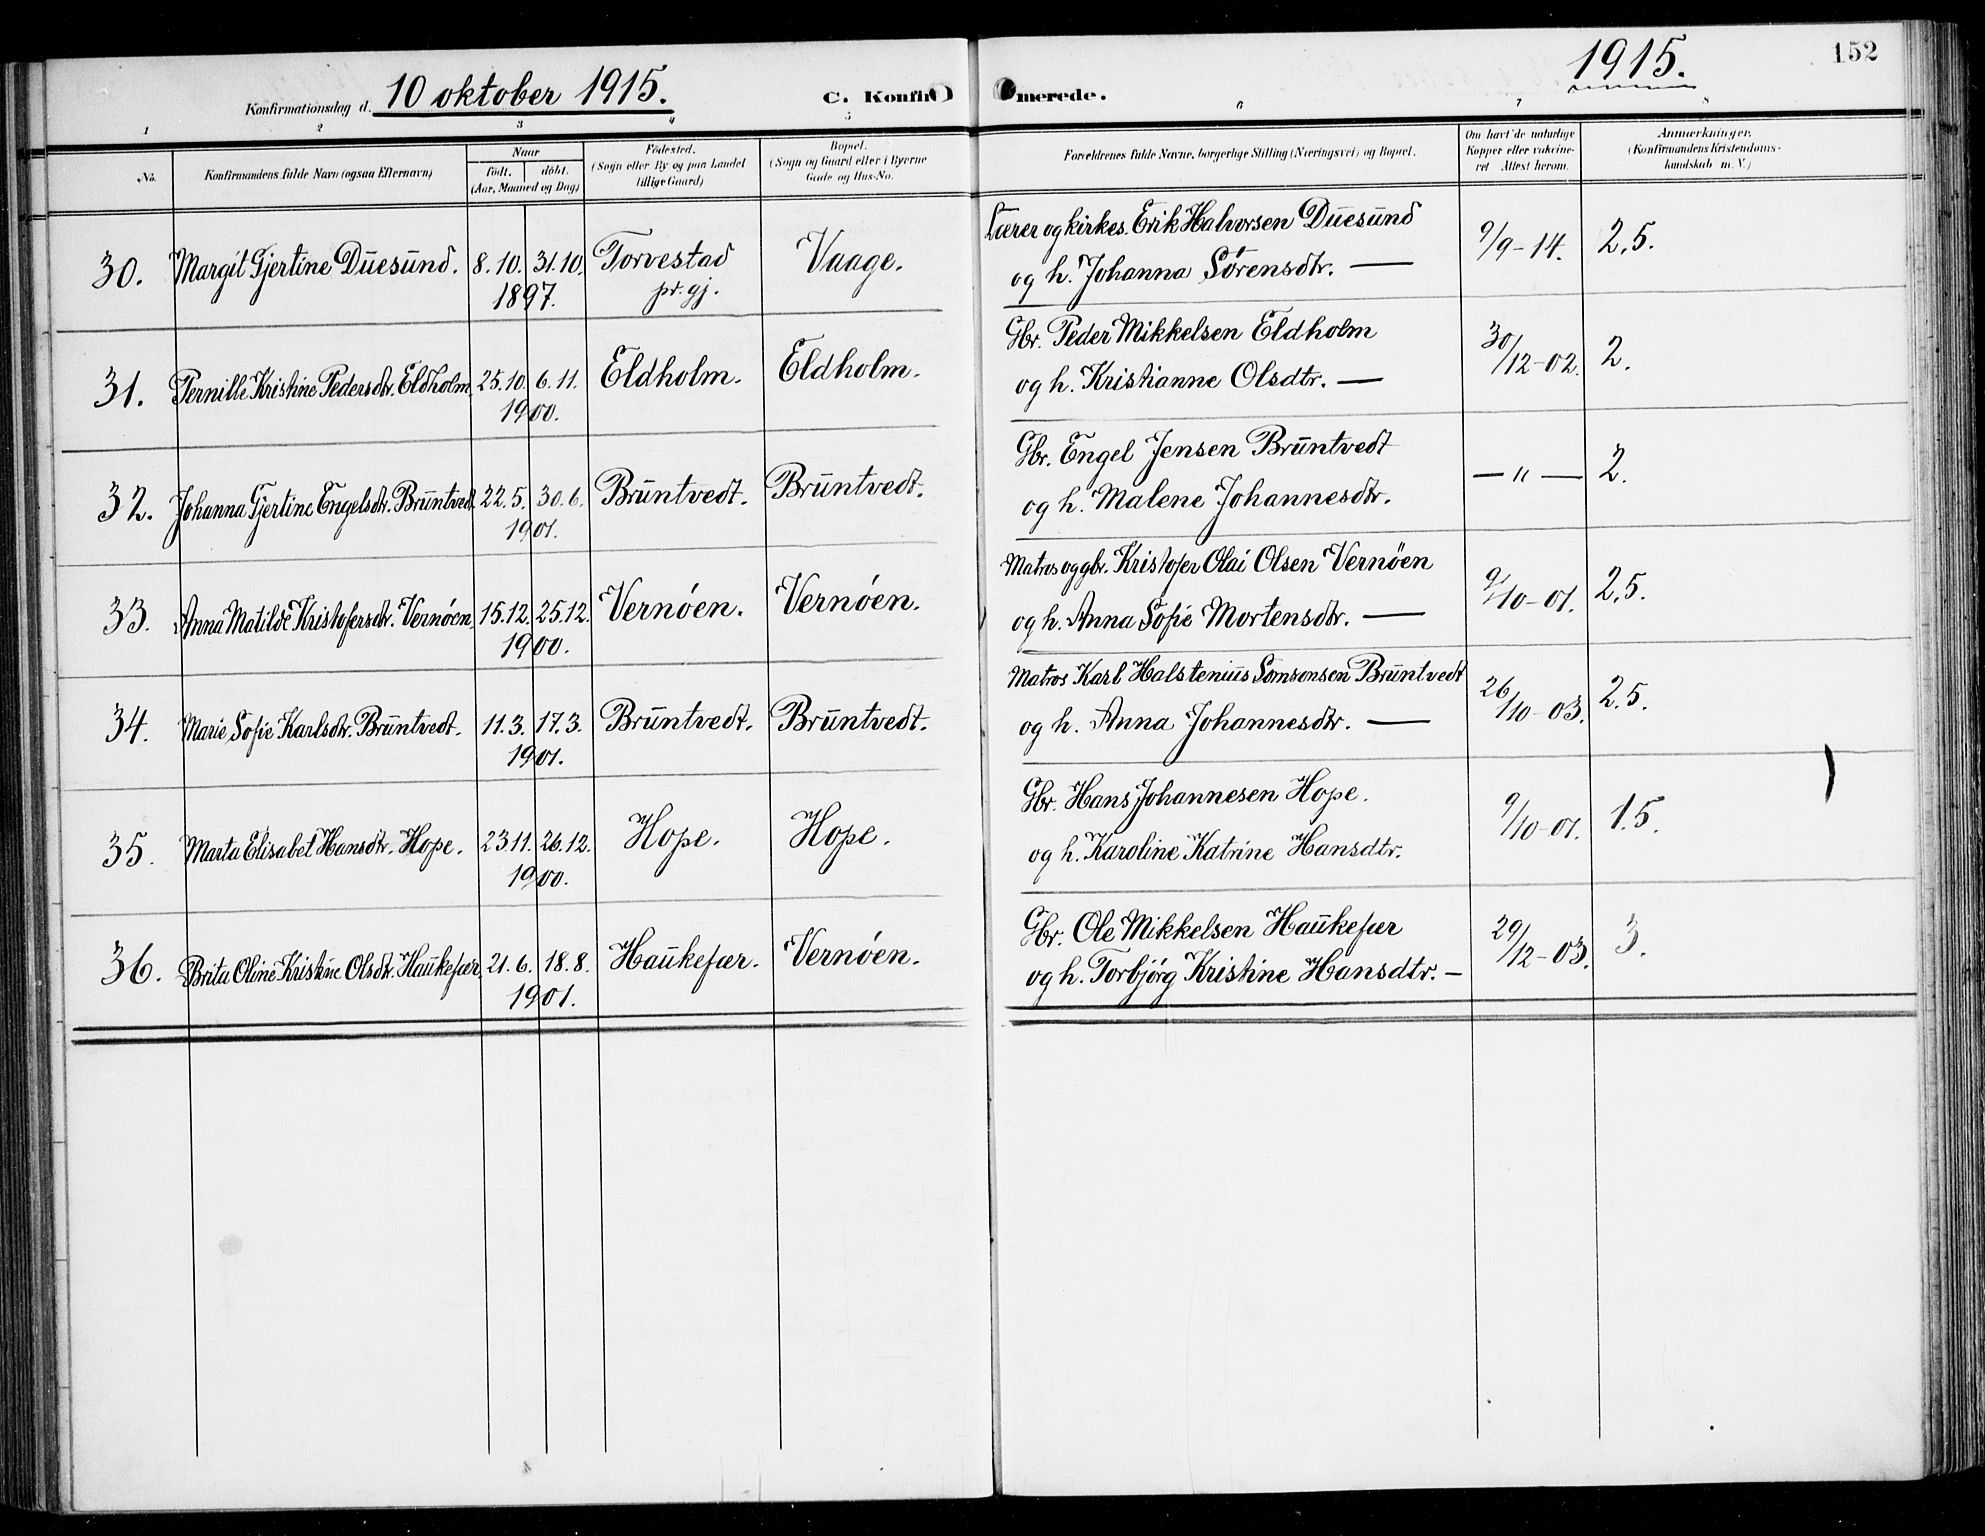 Konfirmationsdag d. 10 oktober 1915.
C. Konfirmerede.
1915.
152
1 2 3 4 5 6 7 8
No.
Konfirmandens fulde Navn (ogsaa Efternavn)
Naar
födt. döbt.
(Aar, Maaned og Dag)
Födested.
(Sogn eller By og paa Landet
tillige Gaard)
Bopæl.
(Sogn og Gaard eller i Byerne
Gade og Hus-No.
Forældrenes fulde Navne, borgerlige Stilling (Næringsvei) og Bopæl.
Om havt de naturlige
Kopper eller vakcine-
ret Attest herom.
Anmærkninger.
(Konfirmandens Kristendoms-
kundskab m. V.)
30. Margit Gjertine Duesund. 8.10. 31.10. Torvestad Vaage. Lærer og kirkes. Erik Halvorsen Duesund 9/9-14. 2,5.
1897. pr. gj. og h. Johanna Sörensdtr. —
31. Pernille Kristine Pedersdtr. Eldholm. 25.10. 6.11. Eldholm. Eldholm. Gbr. Peder Mikkelsen Eldholm 30/12-02. 2.
1900. og h. Kristianne Olsdtr. —
32. Johanna Gjertine Engelsdtr. Bruntvedt. 22.5. 30.6. Bruntvedt. Bruntvedt. Gbr. Engel Jensen Bruntvedt — " — 2.
1901. og h. Malene Johannesdtr.
33. Anna Matilde Kristofersdtr. Vernöen. 15.12. 25.12. Vernöen. Vernöen. Matros og gbr. Kristofer Olai Olsen Vernöen 9/10-01. 2,5.
1900. og h. Anna Sofie Mortensdtr. —
34. Marie Sofie Karlsdtr. Bruntvedt. 11.3. 17.3. Bruntvedt. Bruntvedt. Matros Karl Halstenius Samsonsen Bruntvedt 26/10-03. 2.5.
1901. og h. Anna Johannesdtr. —
35. Marta Elisabet Hansdtr. Hope. 23.11. 26.12. Hope. Hope. Gbr. Hans Johannesen Hope. 9/10-01. 1.5.
1900. og h. Karoline Katrine Hansdtr.
36. Brita Oline Kristine Olsdtr. Haukefær. 21.6. 18.8. Haukefær. Vernöen. Gbr. Ole Mikkelsen Haukefær 29/12-03. 3.
1901. og h. Torbjörg Kristine Hansdtr. —